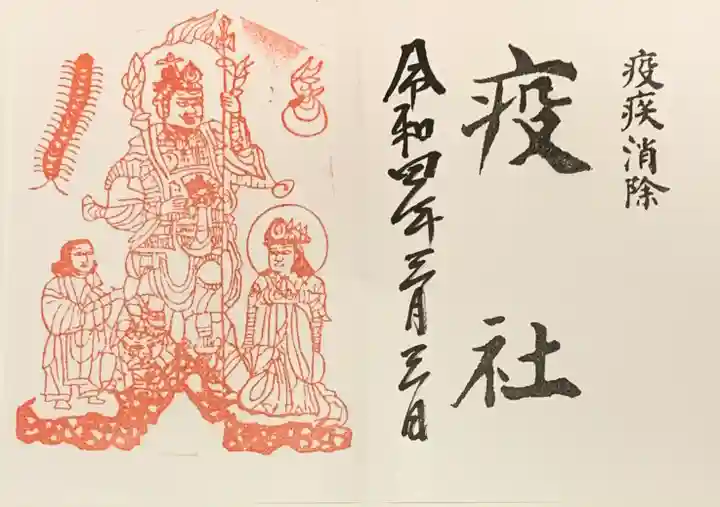 疫疾消除
疫社
令和四年三月三日